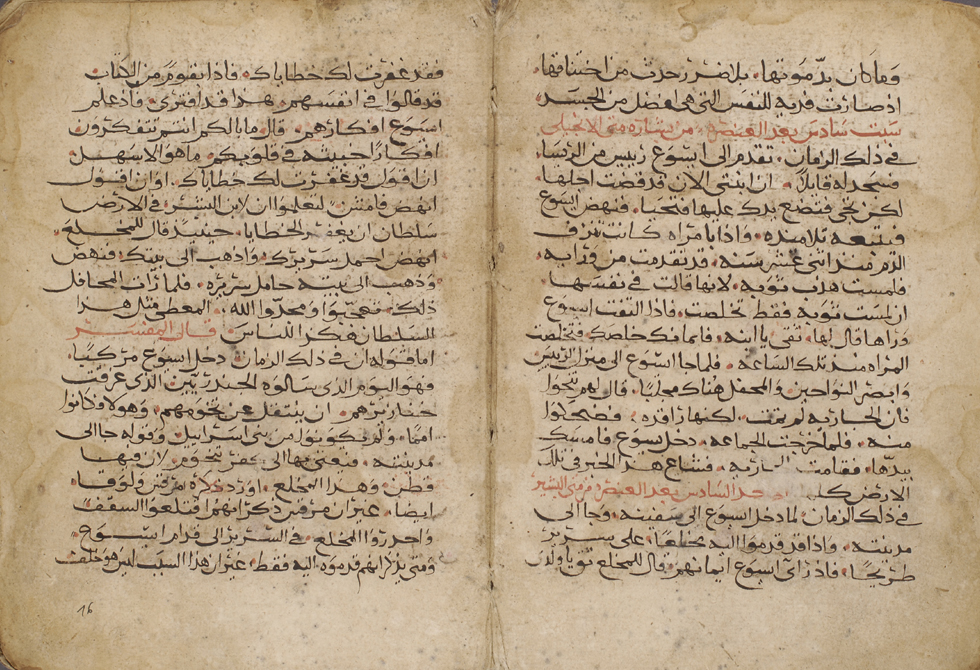 وما كان بدّ موتها. بلا ضرر حدث من اختناقها.
اذ صارت فدية للنفس التي هي افضل من الجسد.
سبت سادس بعد العنصرة. من بشارة متى الانجيلي
في ذلك الزمان. تقدم الى ايسوع رييس من الروسا.
فسجد له قايلا. ان ابنتي الان قد قضت اجلها.
لكن تجي فتضع يدك عليها فتحيا. فنهض ايسوع
فتبعه تلاميذه. واذا بامراه كانت تنزف
الدم منذ اثنى عشر سنه. قد تقدمت من ورايه
فلمست هدب ثوبه. لانها قالت في نفسها
ان لمست ثوبه فقط تخلصت. فاذا التفت ايسوع
وراها قال لها. ثقي يا ابنه. فايمانك خلصك فتخلصت
المراه منذ تلك الساعه. فلما جا ايسوع الى منزل الرييس
وابصر النواحين والمحفل هناك مجلبا. قال لهم تنحوا
فان الجاريه لم تمت. لكنها راقده. فضحكوا
منه. فلما اخرجت الجماعه. دخل يسوع فامسك
بيدها. فقامت الجاريه. فشاع هذا الخبر في تلك
الارض كلها. احد السادس بعد العنصره من متى البشير
في ذلك الزمان لما دخل ايسوع الى سفينه. وجا الى
مدينته. واذا قد قدموا اليه مخلعا. على سرير
طريحا. فاذ راى ايسوع ايمانهم. قال للمخلع ثق يا ولد
فقد غفرت لك خطاياك. فاذا بقوم من الكتاب
قد قالوا في انفسهم. هذا قد افترى. فاذ علم
ايسوع افكارهم. قال ما بالكم انتم تتفكرون
افكارا خبيثه في قلوبكم. ما هو الاسهل
ان اقول قد غفرت لك خطاياك. او ان اقول
انهض فامش لتعلموا ان لابن البشر في الارض
سلطان ان يغفر الخطايا. حينيذ قال للمخلع
انهض احمل سريرك. واذهب الى بيتك. فنهض
وذهب الى بيته حامل سريره. فلما رات المحافل
ذلك. تعجبوا ومجدوا الله. المعطى مثل هذا
السلطان هكذا للناس. قال المفسر
اما قوله ان في ذلك الزمان دخل ايسوع مركبا.
فهو اليوم الذي سالوه الجندريين الذي غرقت
خنازيرهم. ان ينتقل عن تخومهم. وهولا فكانوا
امما. ولم يكونوا من بني اسراييل. وقوله جا الى
مدينته. فيعني بها الى كفرنحوم. لان فيها
قطن. وهذا المخلع. اورد ذكره مرقس ولوقا
ايضا. غير ان مرقس ذكر انهم اقتلعوا السقف
واحدروا المخلع. في السرير الى قدام ايسوع
ومتى يذكر انهم قدموه اليه فقط. غير ان هذا السبب ليس هو خلف
16